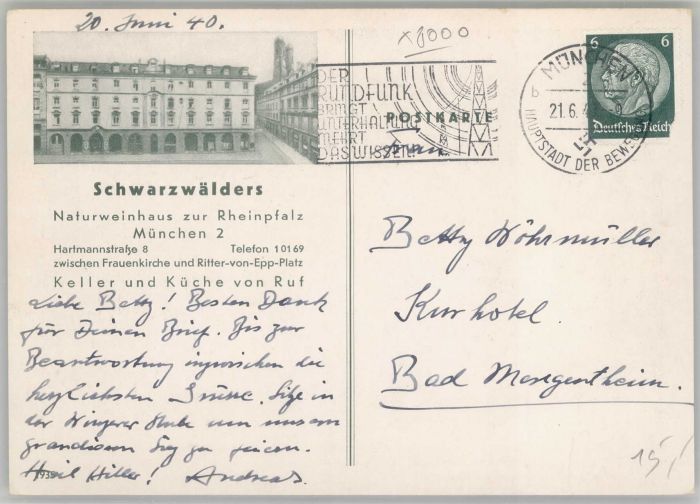 20. Juni 40.
x8000
DER
RUNDFUNK
BRINGT
UNTERHALTUNG
MEHRT
DAS WISSEN.
POSTKARTE
MÜNCHEN
b
21.6.4
9
HAUPTSTADT DER BEWEG
6 6
Deutsches Reich
Schwarzwälders
Naturweinhaus zur Rheinpfalz
München 2
Hartmannstraße 8 Telefon 10169
zwischen Frauenkirche und Ritter-von-Epp-Platz
Keller und Küche von Ruf
Liebe Betty! Besten Dank
für Deinen Brief. Bis zur
Beantwortung inzwischen die
herzlichsten Grüsse. Sitze in
der Winzerer Stube um unsern
grandiosen Sieg zu feiern.
Heil Hitler! Andreas.
193
Frau
Betty Wöhrmüller
Kurhotel.
Bad Mergentheim.
15,/